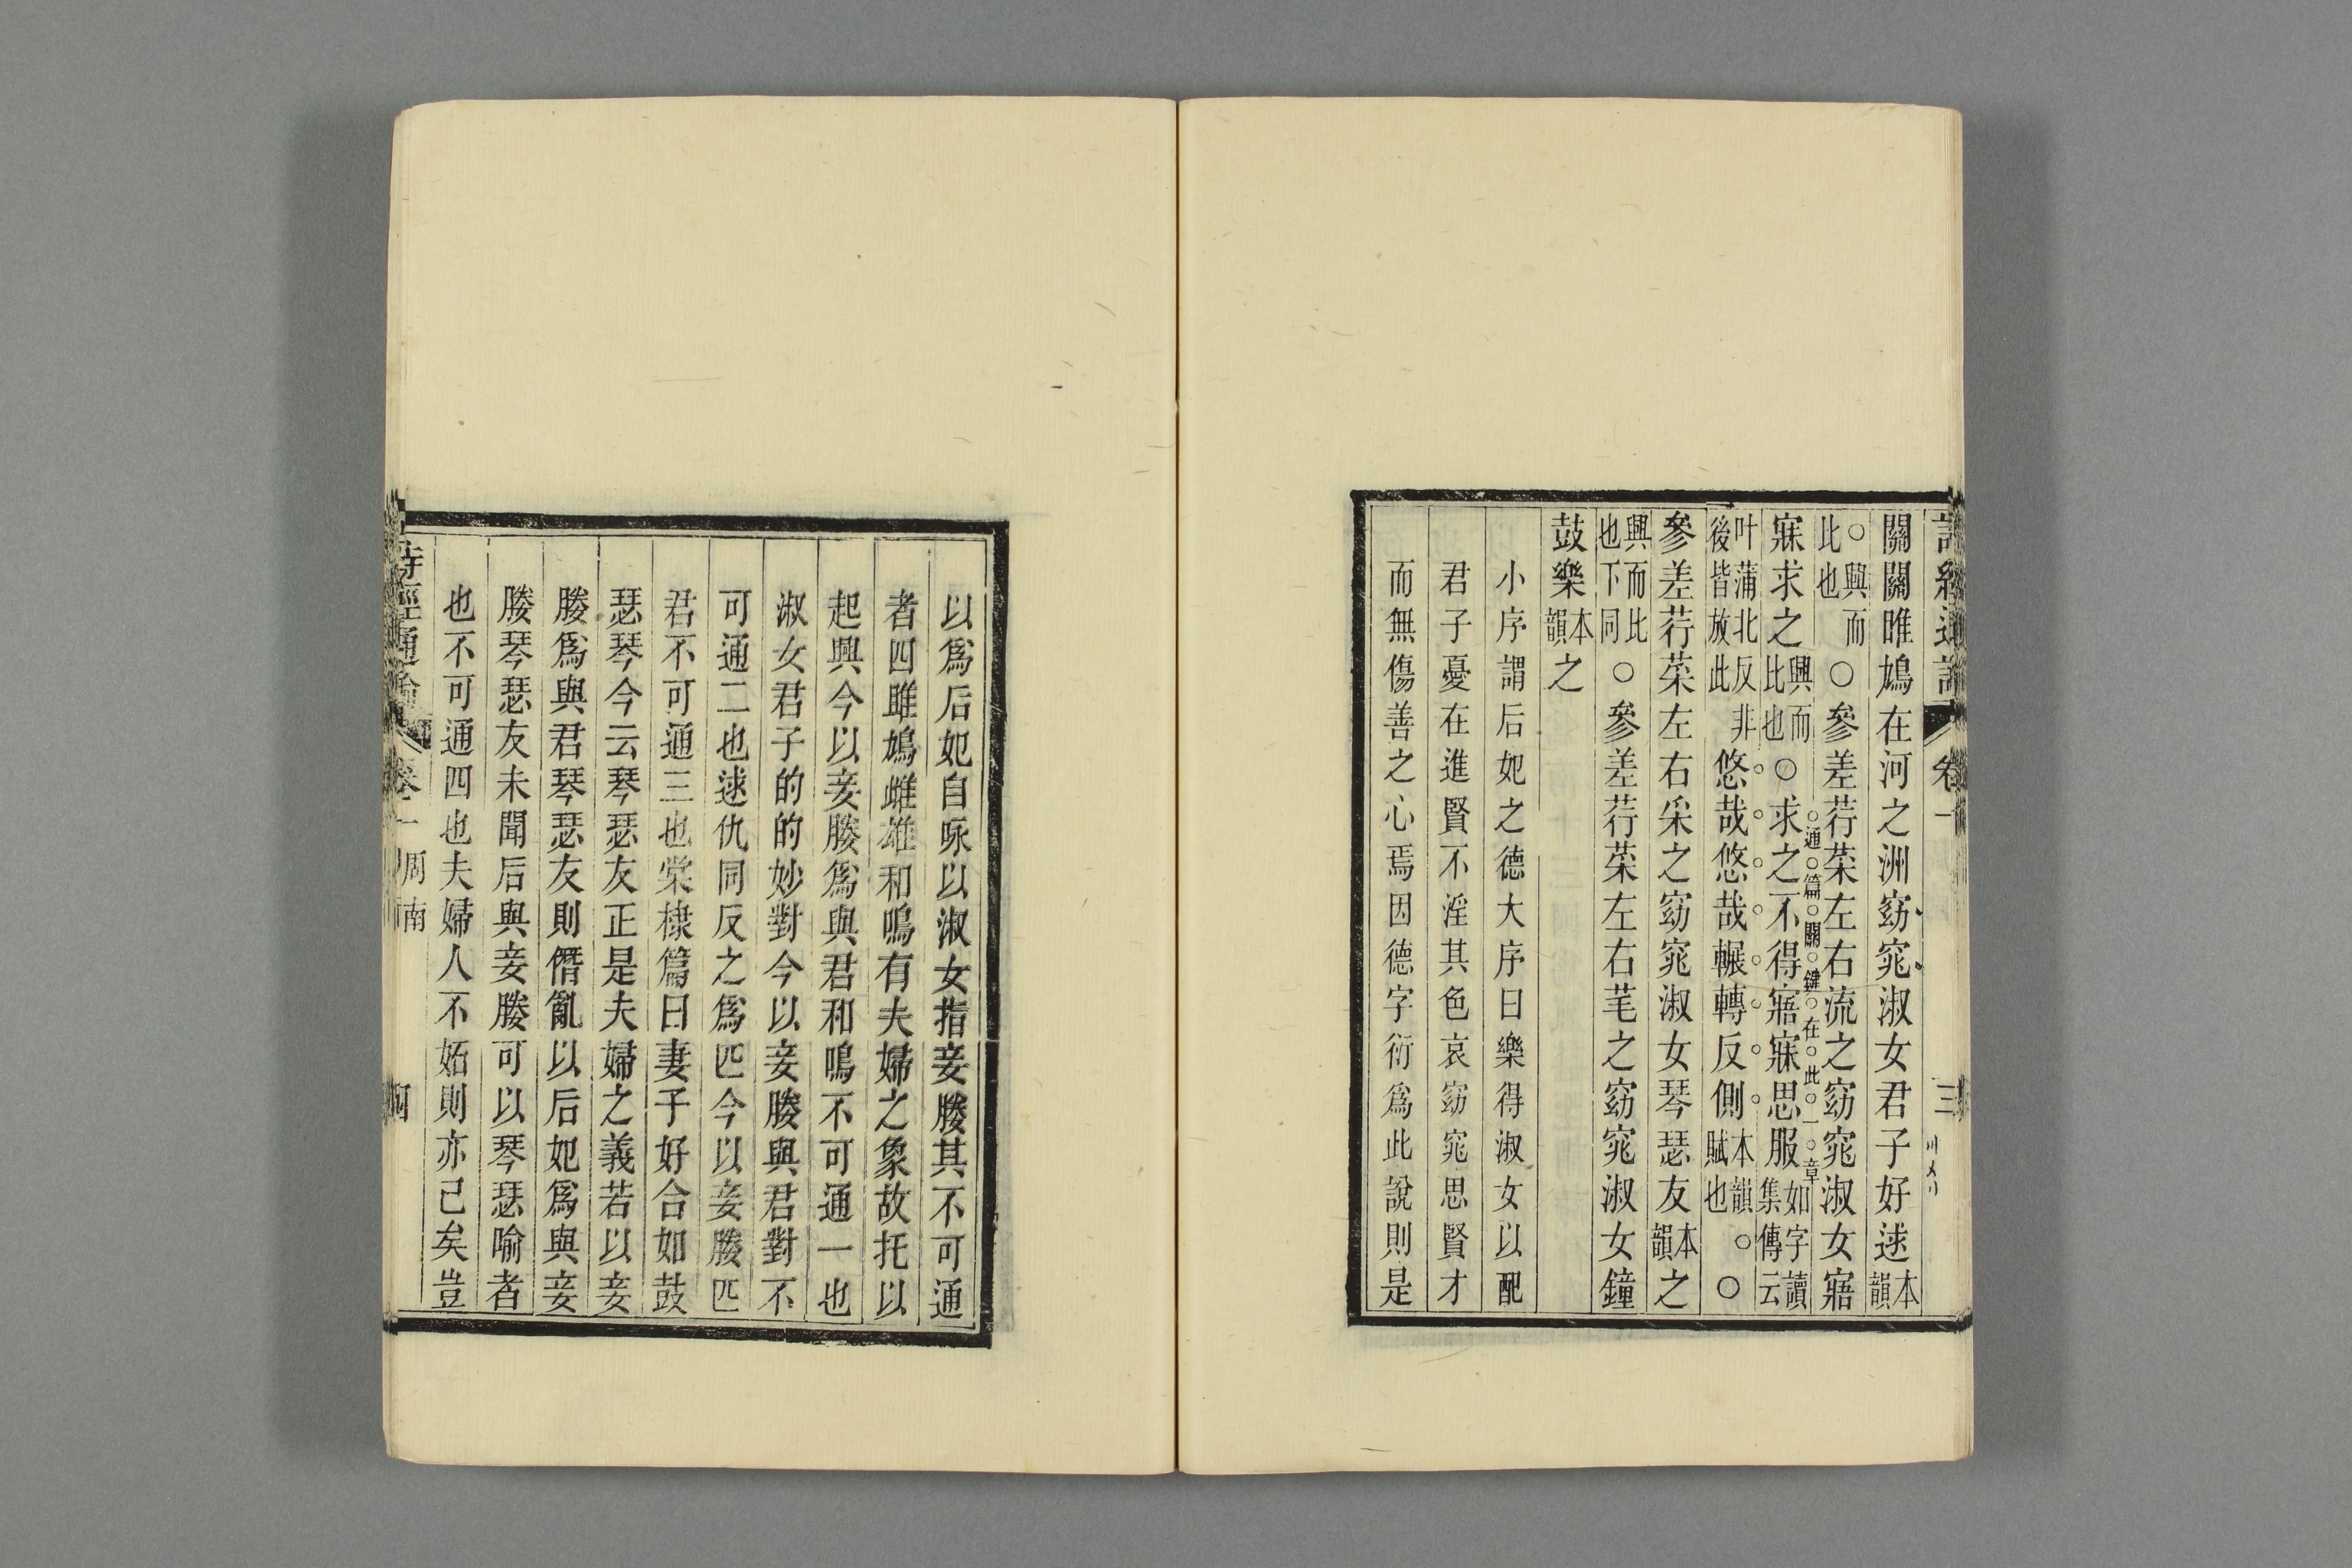 詩經通論 卷一 三
關關雎鳩在河之洲窈窕淑女君子好逑本韻
○興而比也○參差荇菜左右流之窈窕淑女寤
○通○篇○關○鍵○在○此○一○章
寐求之興而比也○求之不得寤寐思服如字讀集傳云
叶蒲北反非後皆放此悠哉悠哉輾轉反側本韻○賦也○
參差荇菜左右采之窈窕淑女琴瑟友本韻之
興而比也下同○參差荇菜左右芼之窈窕淑女鐘
鼓樂本韻之
小序謂后妃之德大序曰樂得淑女以配
君子憂在進賢不淫其色哀窈窕思賢才
而無傷善之心焉因德字衍爲此說則是
以爲后妃自咏以淑女指妾媵其不可通
者四雎鳩雌雄和鳴有夫婦之象故托以
起興今以妾媵爲與君和鳴不可通一也
淑女君子的的妙對今以妾媵與君對不
可通二也逑仇同反之爲匹今以妾媵匹
君不可通三也棠棣篇曰妻子好合如鼓
瑟琴今云琴瑟友正是夫婦之義若以妾
媵爲與君琴瑟友則僭亂以后妃爲與妾
媵琴瑟友未聞后與妾媵可以琴瑟喻者
也不可通四也夫婦人不妬則亦已矣豈
詩經通論 卷一 周南 四